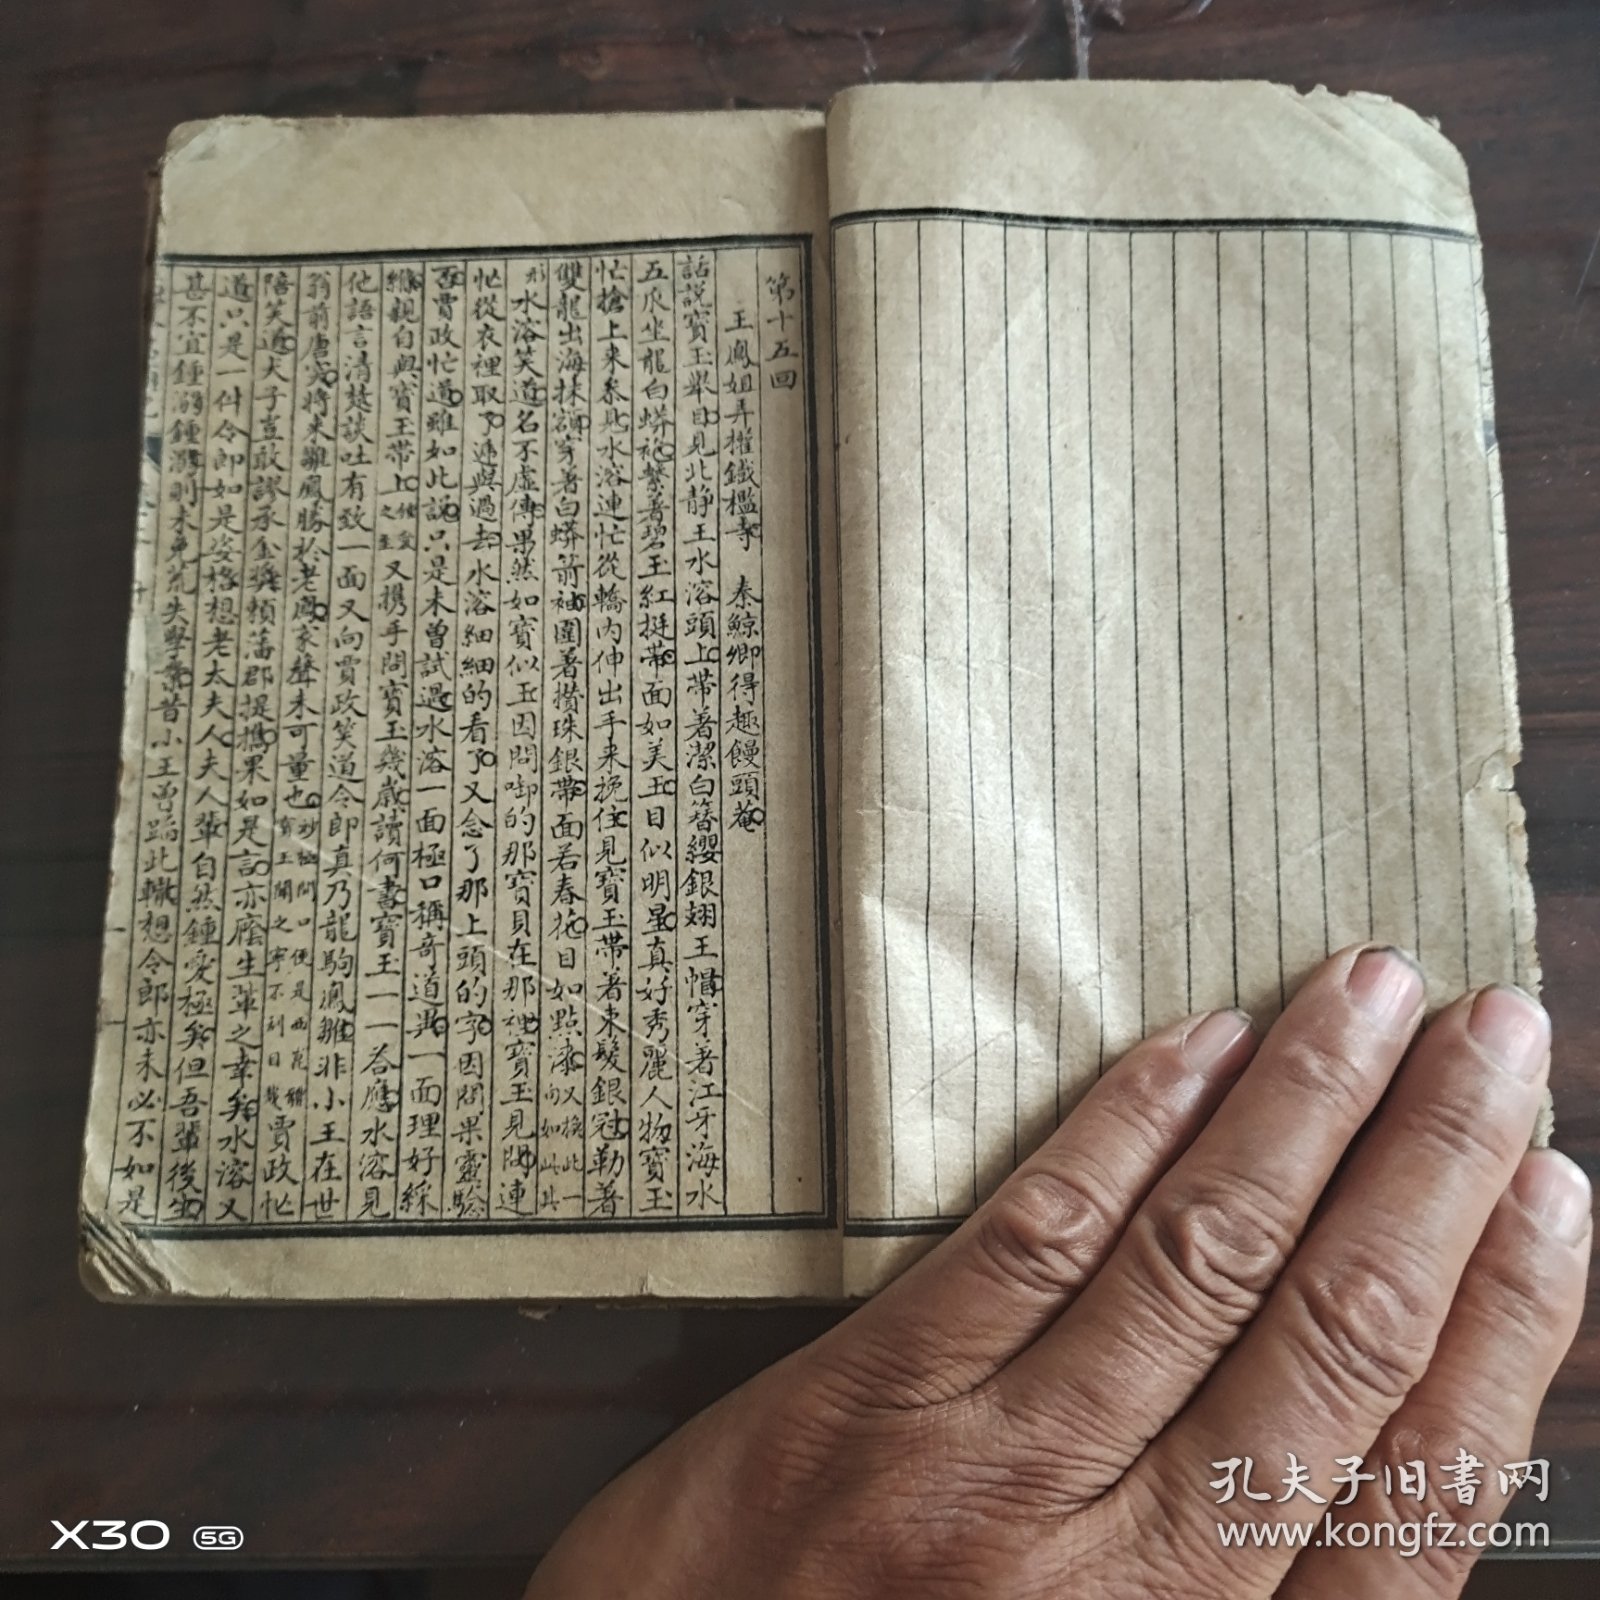 第十五回
王鳳姐弄權鐵檻寺　秦鯨卿得趣饅頭菴
話說寶玉舉目見北静王水溶頭上帶著潔白簪纓銀翅王帽穿著江牙海水
五爪坐龍白蟒袍繫著碧玉紅挺帶面如美玉目似明星真好秀麗人物寶玉
忙搶上来叅見水溶連忙從轎内伸出手来挽住見寶玉帶著束髮銀冠勒著
雙龍出海抹額穿著白蟒箭袖圍著攅珠銀帶面若春花目如點漆又換此一句如此其
形水溶笑道名不虛傳果然如寶似玉因問啣的那寶貝在那裡寶玉見問連
忙從衣裡取了遞與過去水溶細細的看了又念了那上頭的字因問果靈驗
否賈政忙道雖如此説只是未曾試過水溶一面極口稱奇道異一面理好綵
縧親自與寶玉帶上又携手問寶玉幾歲讀何書寶玉一一荅應水溶見
他語言清楚談吐有致一面又向賈政笑道令郎真乃龍駒鳳雛非小王在世
翁前唐突將来雛鳳勝於老鳳家聲未可量也賈政忙
陪笑道犬子豈敢謬承金奬頼藩郡提携果如是言亦廕生輩之幸矣水溶又
道只是一件令郎如是姿格想老太夫人夫人輩自然鍾愛極矣但吾輩後生
甚不宜鍾溺鍾溺則未免荒失學業昔小王曾蹈此轍想令郎亦未必不如是
X30 5G
孔夫子旧书网
www.kongfz.com